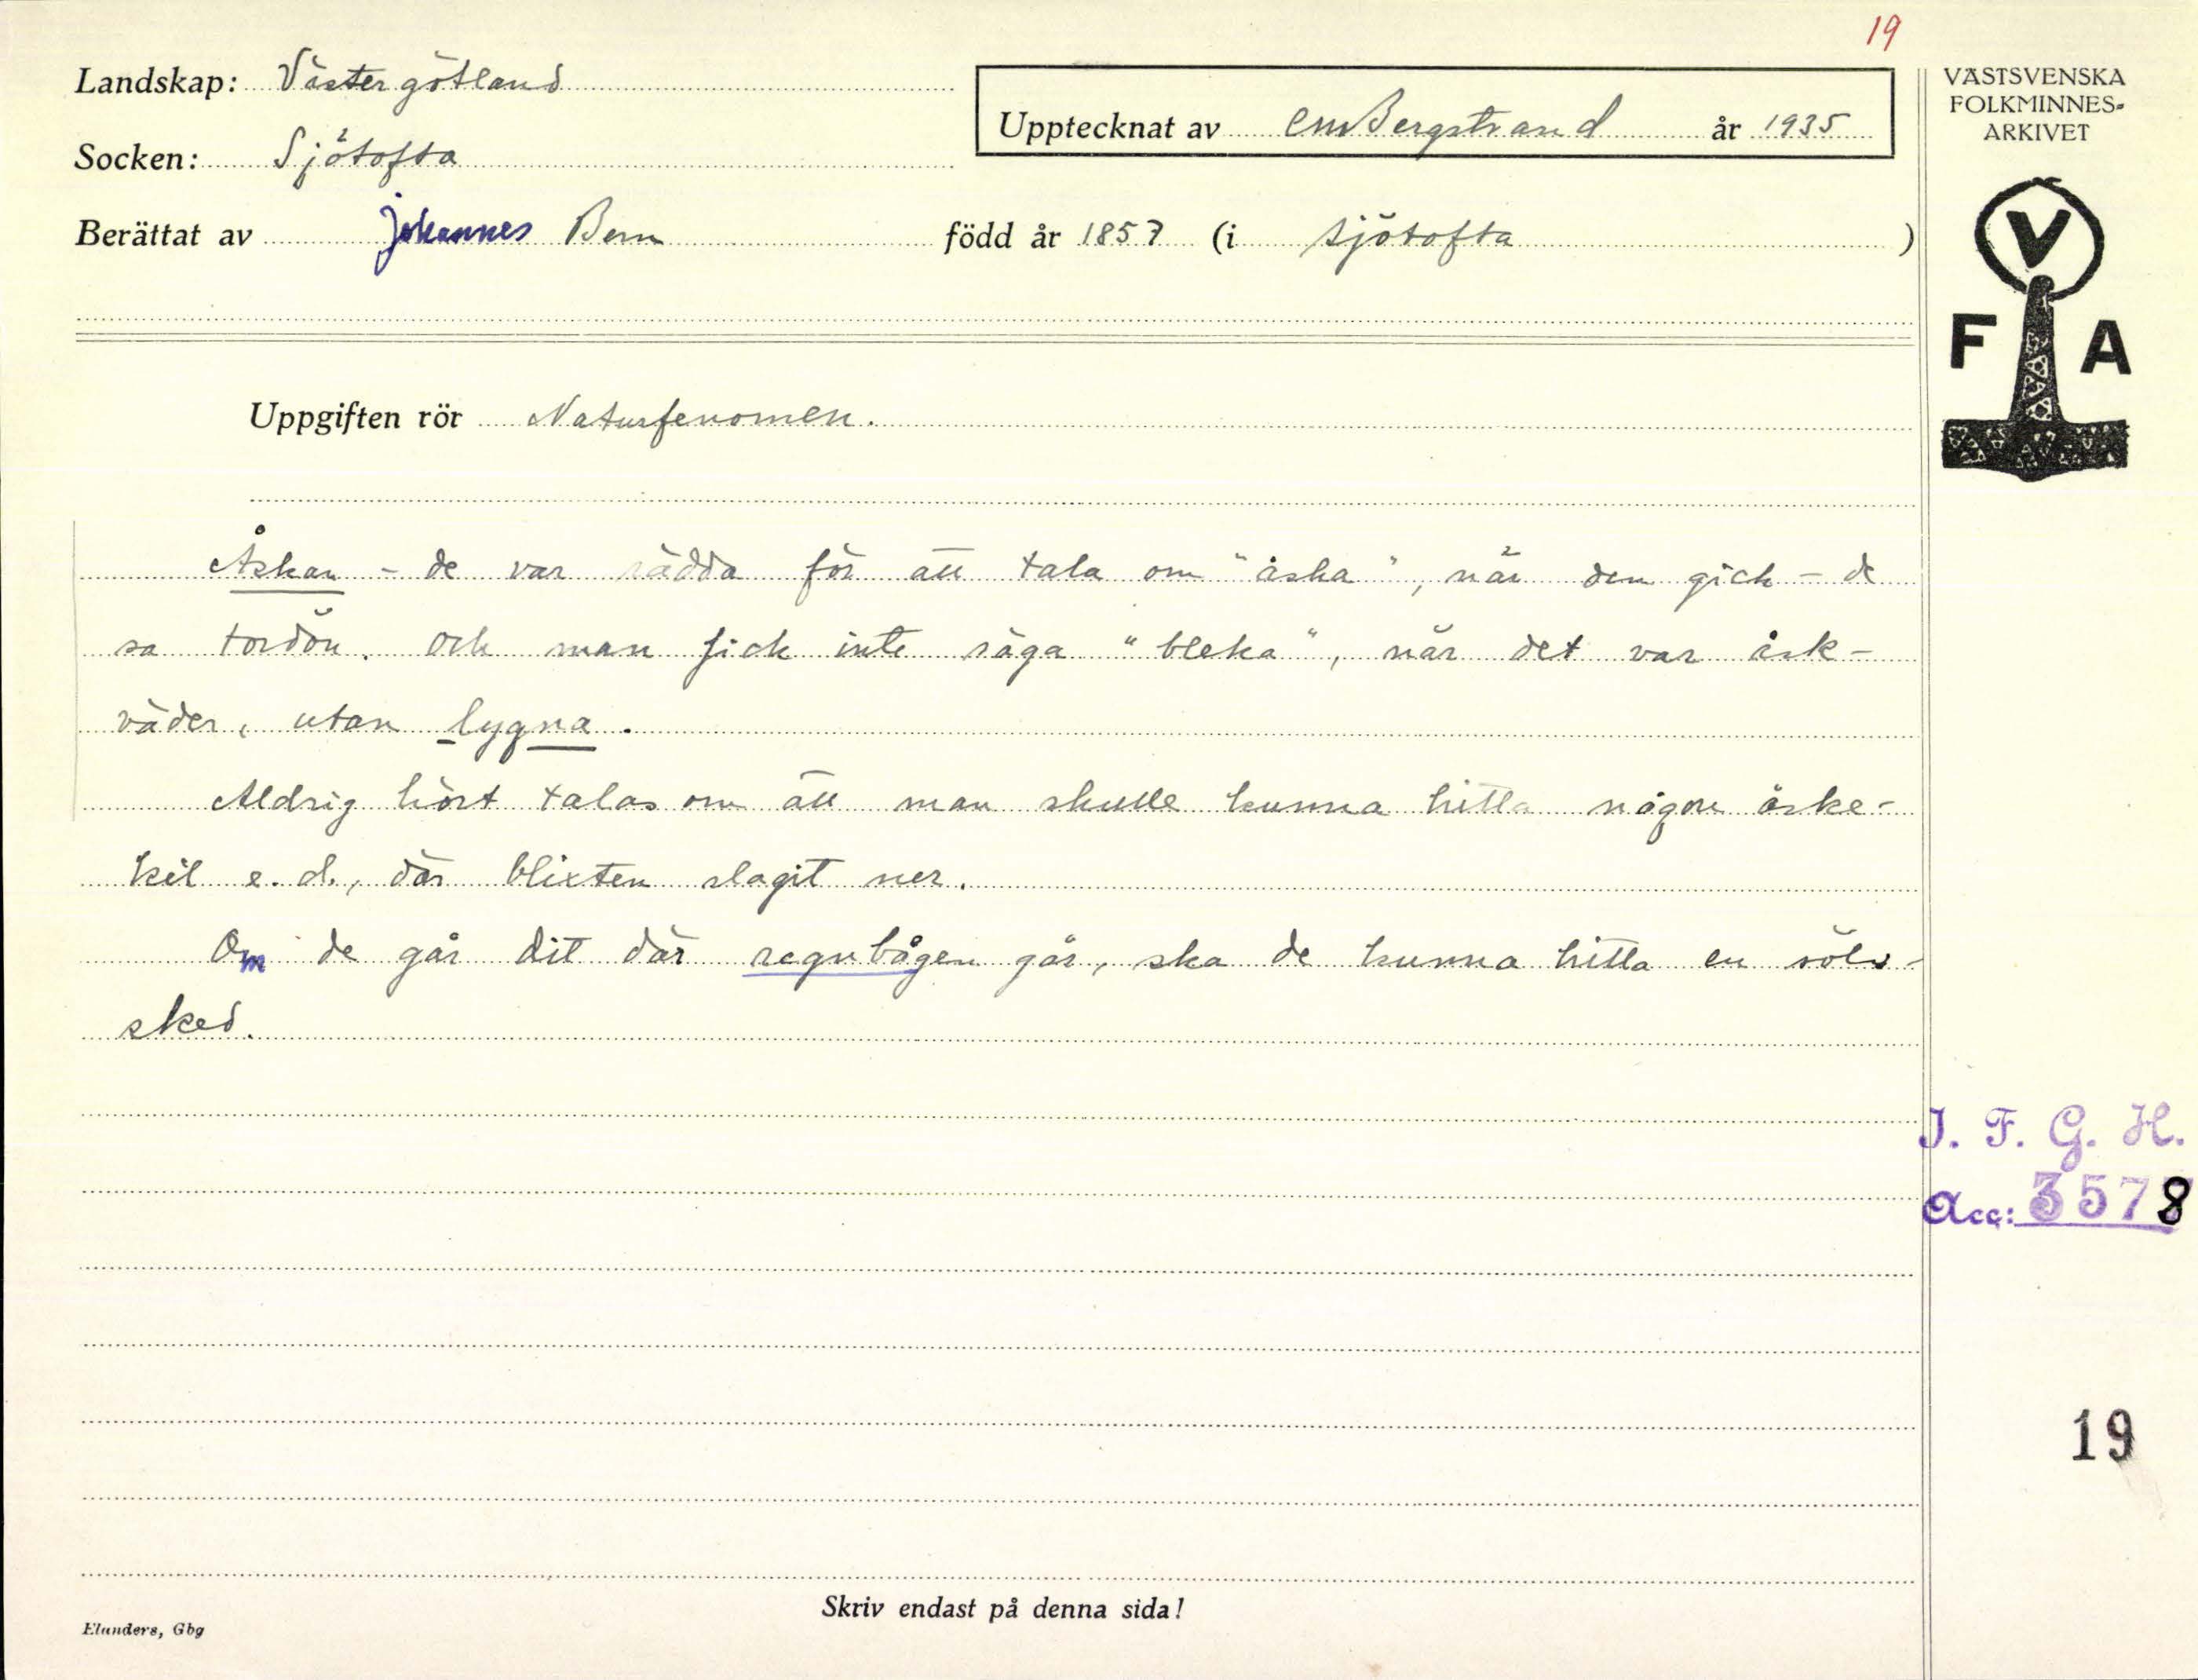 19
Landskap: Västergötland
Socken: Sjötofta
Upptecknat av CMBergstrand år 1935
Berättat av Johannes Bern född år 1857 (i Sjötofta)
VÄSTSVENSKA
FOLKMINNES-
ARKIVET
V
F A
Uppgiften rör Naturfenomen.
Åskan - de var rädda för att tala om "åska", när den gick - de
sa tordön. Och man fick inte säga "bleka", när det var åsk-
väder, utan lygna.
Aldrig hört talas om att man skulle kunna hitta någon åske-
kil e.d., där blixten slagit ner.
Om de går dit där regnbågen går, ska de kunna hitta en sölv-
sked.
I. F. G. H.
Acc: 3578
19
Skriv endast på denna sida!
Elanders, Gbg